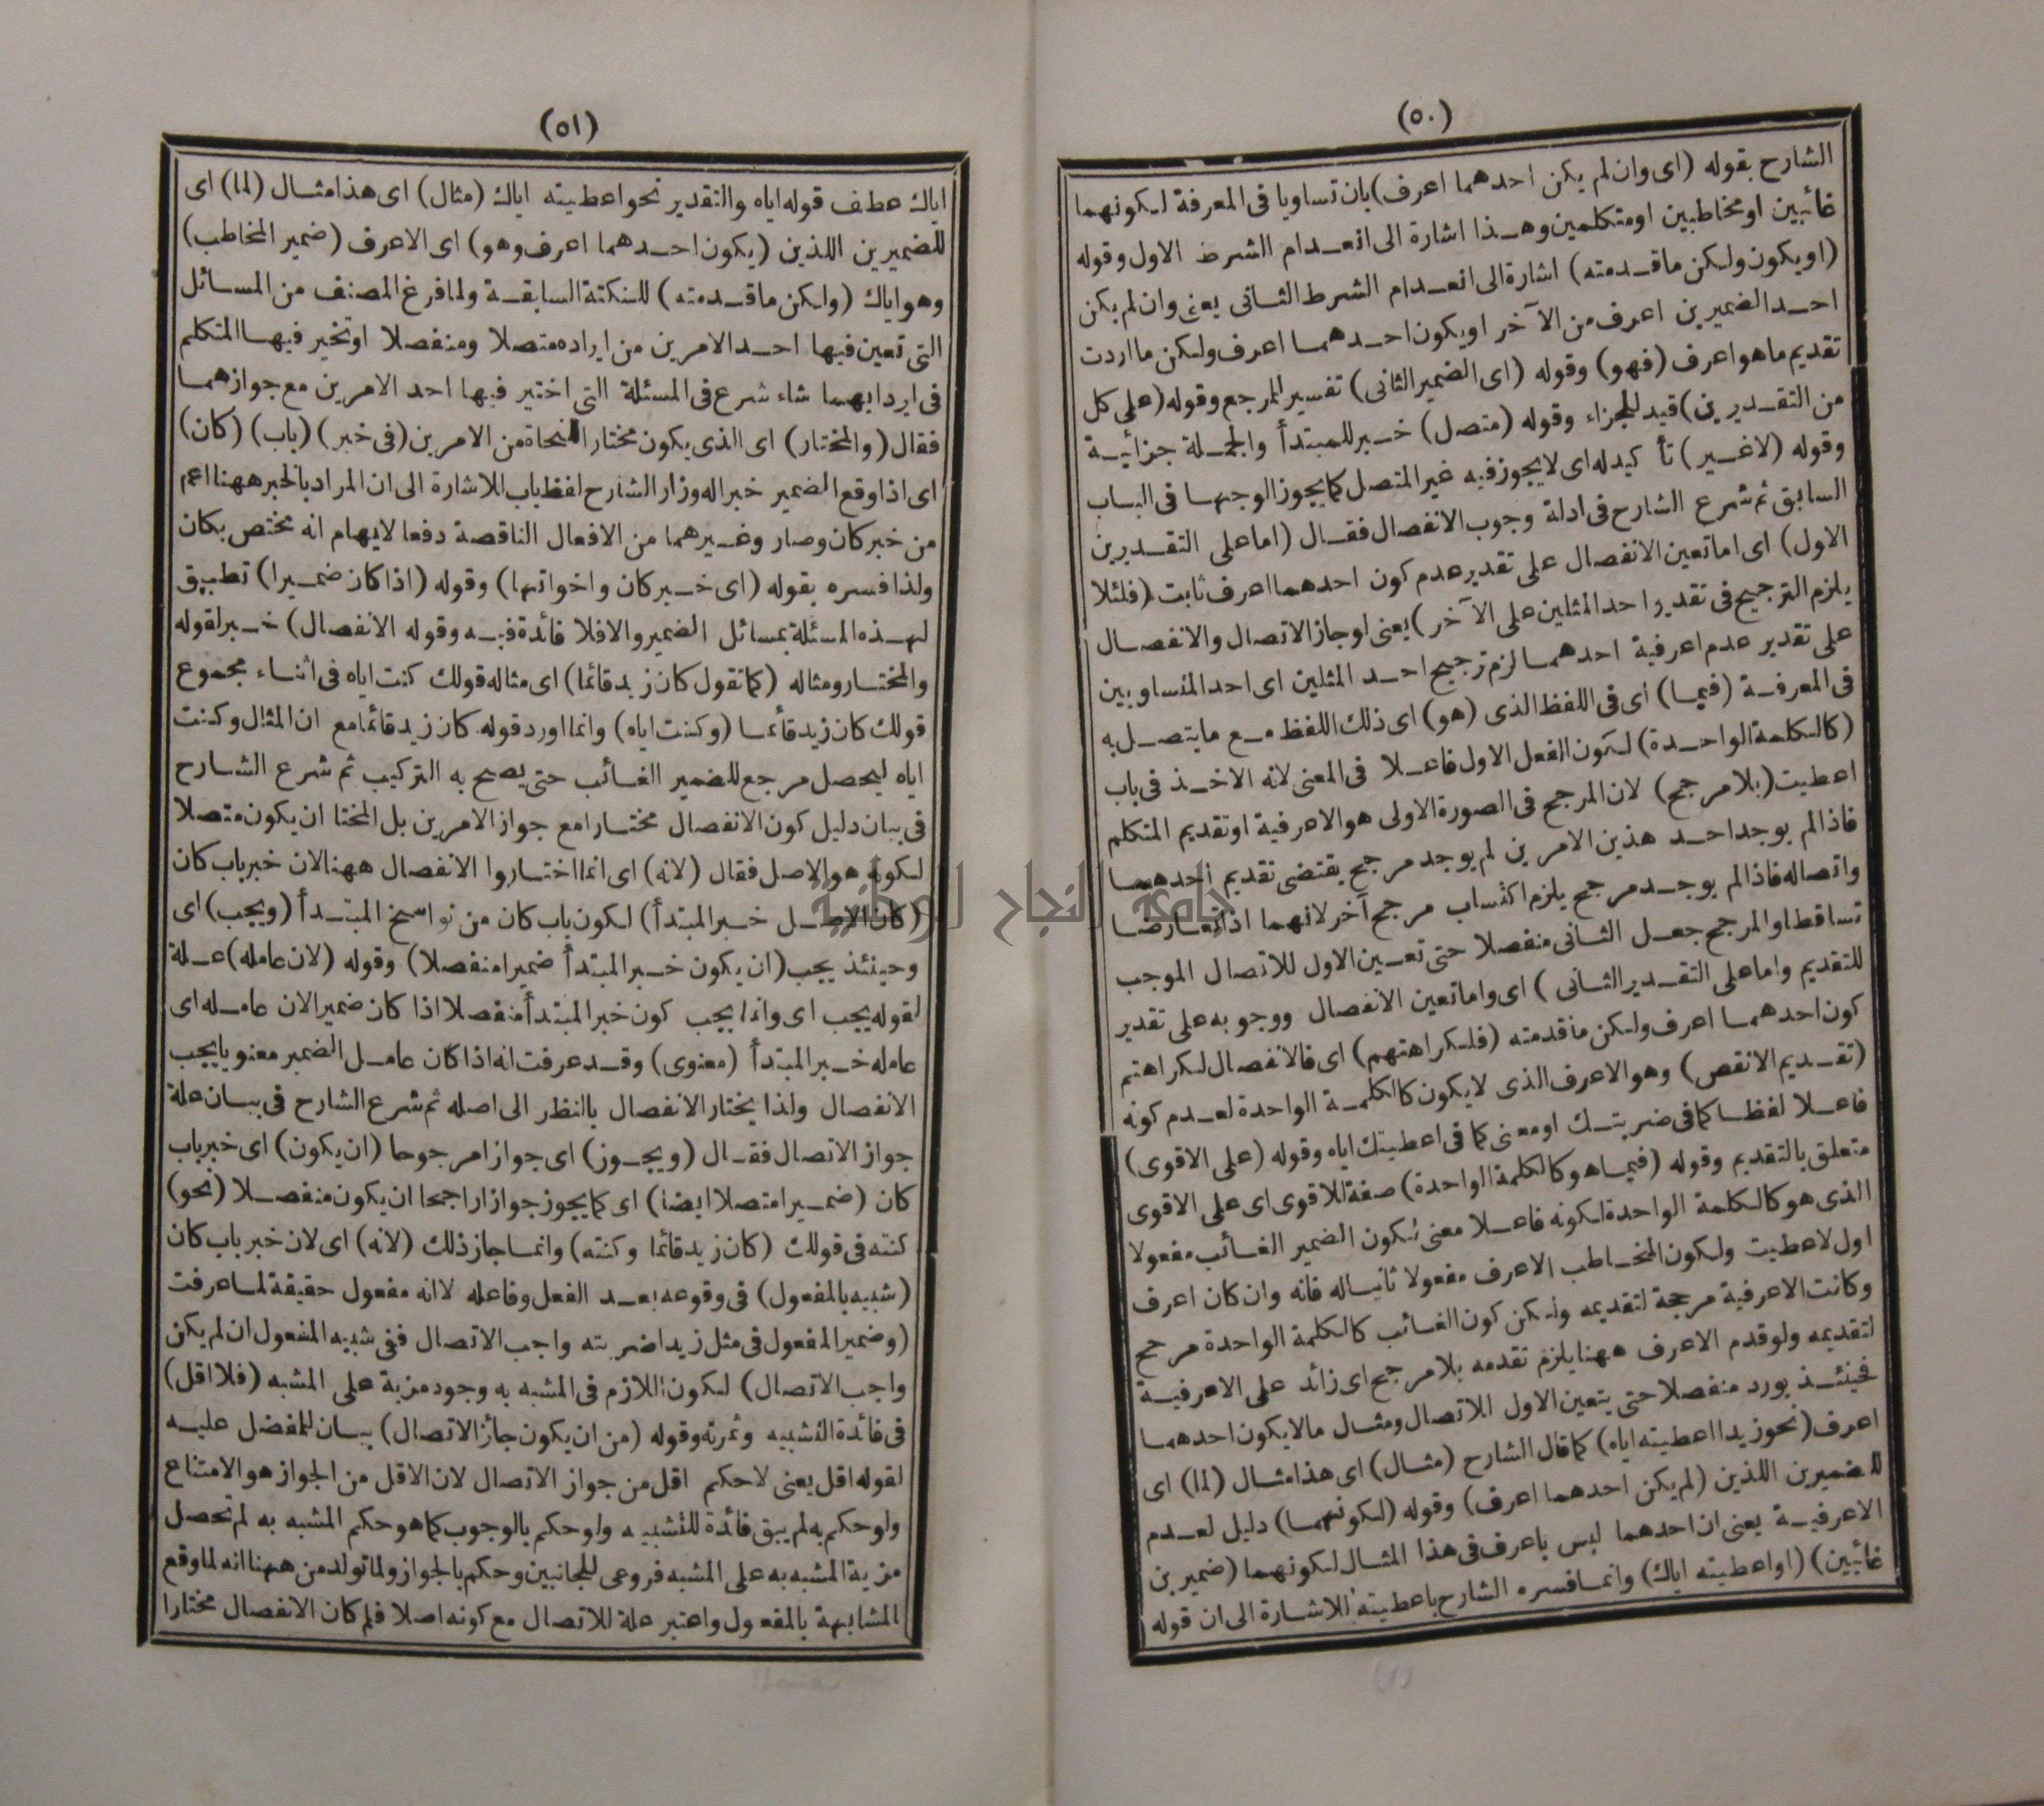 (٥٠)
الشارح بقوله (اى وان لم يكن احدهما اعرف) بان تساويا فى المعرفة لكونهما
غائبين او مخاطبين او متكلمين وهذا اشارة الى انعدام الشرط الاول وقوله
(او يكون ولكن ما قدمته) اشارة الى انعدام الشرط الثانى يعنى وان لم يكن
احد الضميرين اعرف من الآخر او يكون احدهما اعرف ولكن ما اردت
تقديم ما هو اعرف (فهو) وقوله (اى الضمير الثانى) تفسير المرجع وقوله (على كل
من التقديرين) قيد للجزاء وقوله (متصل) خبر للمبتدأ والجملة جزائية
وقوله (لا غير) تأ كيد له اى لا يجوز فيه غير المتصل كما يجوز الوجهسا فى الباب
السابق ثم شرع الشارح فى ادلة وجوب الانفصال فقال (اما على التقديرين
الاول) اى اما تعين الانفصال على تقدير عدم كون احدهما اعرف ثابت (فلئلا
يلزم الترجيح فى تقدير احد المثلين على الآخر) يعنى لو جاز الاتصال والانفصال
على تقدير عدم اعرفية احدهما لزم ترجيح احد المثلين اى احد المتساويين
فى المعرفة (فيما) اى فى اللفظ الذى (هو) اى ذلك اللفظ مع ما يتصل به
(كالكلمة الواحدة) لكون الفعل الاول فاعلا فى المعنى لانه الاخذ فى باب
اعطيت (بلا مرجح) لان المرجح فى الصورة الاولى هو الاعرفية او تقديم المتكلم
فاذا لم يوجد احد هذين الامرين لم يوجد مرجح يقتضى تقديم احدهما
واتصاله فاذا لم يوجد مرجح يلزم اكتساب مرجح آخر لانهما اذا تعارضا
تساقطا والمرجح جعل الثانى منفصلا حتى تعين الاول للاتصال الموجب
للتقديم واما على التقدير الثانى ) اى واما تعين الانفصال ووجوبه على تقدير
كون احدهما اعرف ولكن ما قدمته (فلكراهتهم) اى فالانفصال لكراهتهم
(تقديم الانقص) وهو الاعرف الذى لا يكون كالكلمة الواحدة لعدم كونه
فاعلا لفظا كما فى ضربتك او معنى كما فى اعطيتك اياه وقوله (على الاقوى)
متعلق بالتقديم وقوله (فيما هو كالكلمة الواحدة) صفة للاقوى اى على الاقوى
الذى هو كالكلمة الواحدة لكونه فاعلا معنى لكون الضمير الغائب مفعولا
اول لاعطيت ولكون المخاطب الاعرف مفعولا ثانيا له فانه وان كان اعرف
وكانت الاعرفية مرجحة لتقديمه ولكن كون الغائب كالكلمة الواحدة مرجح
لتقديمه ولو قدم الاعرف ههنا يلزم تقدمه بلا مرجح اى زائد على الاعرفية
فحينئذ يورد منفصلا حتى يتعين الاول للاتصال ومثال ما لا يكون احدهما
اعرف (نحو زيدا اعطيته اياه) كما قال الشارح (مثال) اى هذا مثال (لما) اى
للضميرين اللذين (لم يكن احدهما اعرف) وقوله (لكونهما) دليل لعدم
الاعرفية يعنى ان احدهما ليس باعرف فى هذا المثال لكونهما (ضميرين
غائبين) (او اعطيته اياك) وانما فسره الشارح باعطيته للاشارة الى ان قوله
(٥١)
اياك عطف قوله اياه والتقدير نحو اعطيته اياك (مثال) اى هذا مثال (لما) اى
للضميرين اللذين (يكون احدهما اعرف وهو) اى الاعرف (ضمير المخاطب)
وهو اياك (ولكن ما قدمته) للنكتة السابقة ولما فرغ المصنف من المسائل
التى تعين فيها احد الامرين من ايراده متصلا ومنفصلا او تخير فيها المتكلم
فى ايراد ايهما شاء شرع فى المسئلة التى اختير فيها احد الامرين مع جوازهما
فقال (والمختار) اى الذى يكون مختار النحاة من الامرين (فى خبر) (باب) (كان)
اى اذا وقع الضمير خبرا له وزاد الشارح لفظ باب للاشارة الى ان المراد بالخبر ههنا اعم
من خبر كان وصار وغيرهما من الافعال الناقصة دفعا لايهام انه مختص بكان
ولذا فسره بقوله (اى خبر كان واخواتها) وقوله (اذا كان ضميرا) تطبيق
لهذه المسئلة بمسائل الضمير والا فلا فائدة فيه وقوله الانفصال) خبر لقوله
والمختار ومثاله (كما تقول كان زيد قائما) اى مثاله قولك كنت اياه فى اثناء مجموع
قولك كان زيد قائما (وكنت اياه) وانما اورد قوله كان زيد قائما مع ان المثال وكنت
اياه ليحصل مرجع للضمير الغائب حتى يصح به التركيب ثم شرع الشارح
فى بيان دليل كون الانفصال مختارا مع جواز الامرين بل المختا ان يكون متصلا
لكونه هو الاصل فقال (لانه) اى انما اختاروا الانفصال ههنا لان خبر باب كان
(كان الاصل خبر المبتدأ) لكون باب كان من نواسخ المبتدأ (ويجب) اى
وحينئذ يجب (ان يكون خبر المبتدأ ضميرا منفصلا) وقوله (لان عامله) علة
لقوله يجب اى وانما يجب كون خبر المبتدأ منفصلا اذا كان ضميرا لان عامله اى
عامله خبر المبتدأ (معنوى) وقد عرفت انه اذا كان عامل الضمير معنويا يجب
الانفصال ولذا يختار الانفصال بالنظر الى اصله ثم شرع الشارح فى بيان علة
جواز الاتصال فقال (ويجوز) اى جوازا مرجوحا (ان يكون) اى خبر باب
كان (ضميرا متصلا ايضا) اى كما يجوز جوازا راجحا ان يكون منفصلا (نحو)
كنته فى قولك (كان زيد قائما وكنته) وانما جاز ذلك (لانه) اى لان خبر باب كان
(شبيه بالمفعول) فى وقوعه بعد الفعل وفاعله لا انه مفعول حقيقة لما عرفت
(وضمير المفعول فى مثل زيدا ضربته واجب الاتصال ففى شبيه المفعول ان لم يكن
واجب الاتصال) لكون اللازم فى المشبه به وجود مزية على المشبه (فلا اقل)
فى فائدة التشبيه وثمرته وقوله (من ان يكون جائز الاتصال) بيان للمفضل عليه
لقوله اقل يعنى لا حكم اقل من جواز الاتصال لان الاقل من الجواز هو الامتناع
ولو حكم به لم يبق فائدة للتشبيه ولو حكم بالوجوب كما هو حكم المشبه به لم تحصل
مزية المشبه به على المشبه فروعى للجانبين وحكم بالجواز ولما تولد من ههنا انه لما وقع
المشابهة بالمفعول واعتبر علة للاتصال مع كونه اصلا فلم كان الانفصال مختارا
جامعة النجاح الوطنية